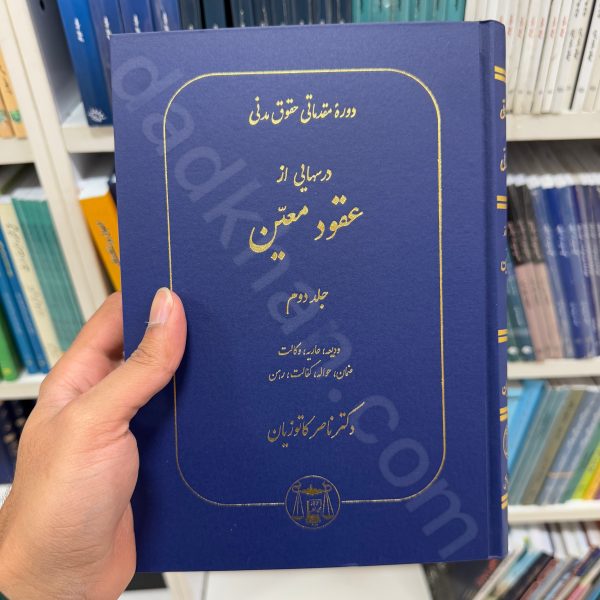 دورهٔ مقدماتی حقوق مدنی
درسهایی از
عقود معیّن
جلد دوم
ودیعه، عاریه، وکالت
ضمان، حواله، کفالت، رهن
دکتر ناصر کاتوزیان
dadkhan.com